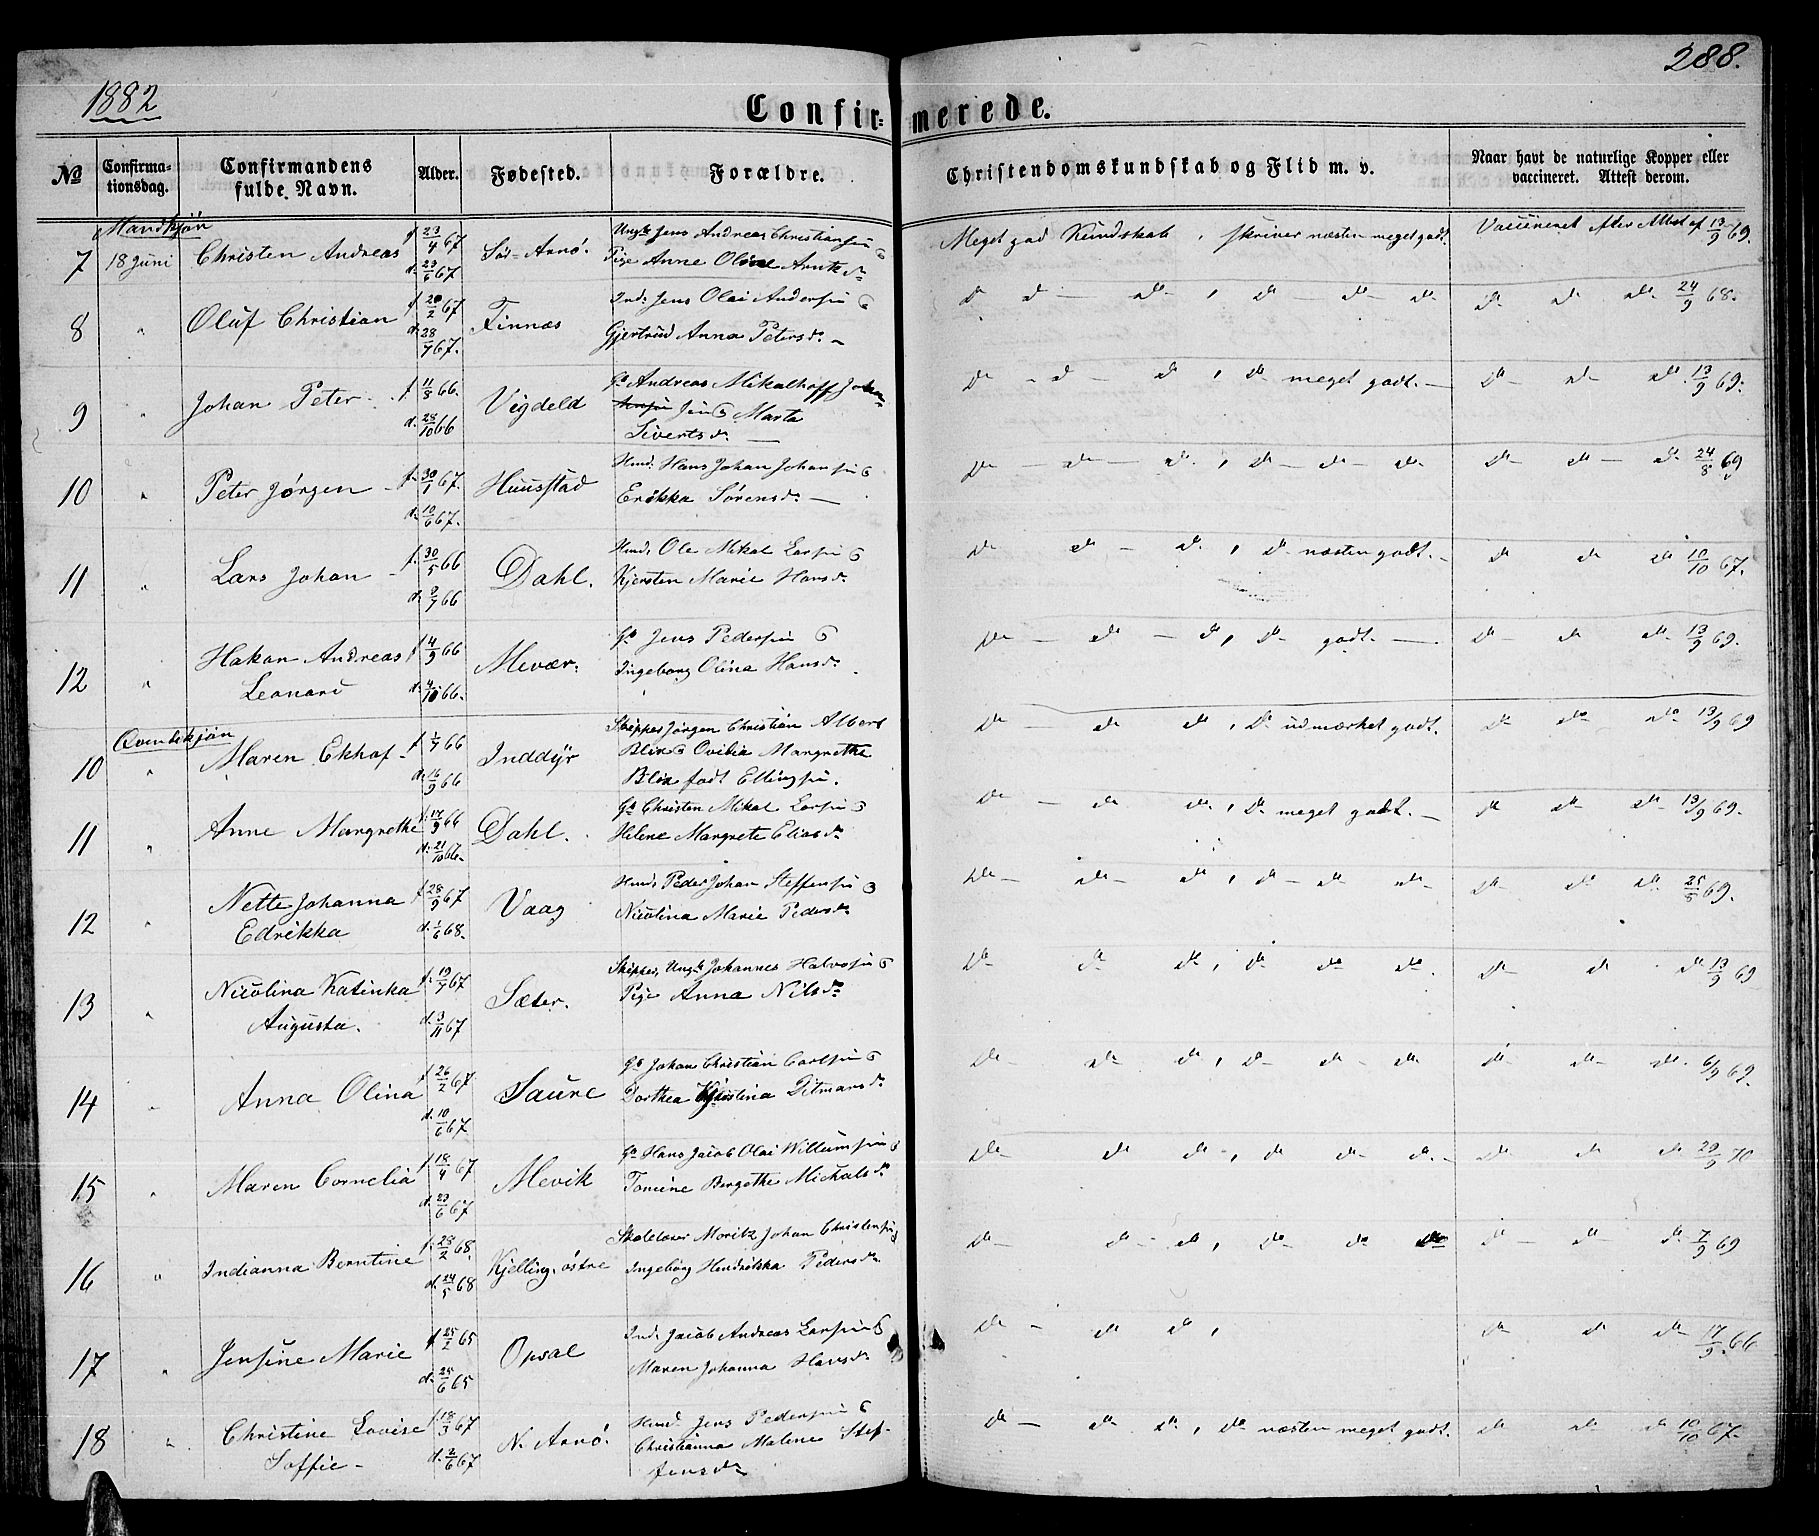 1882
288.
Confirmerede.
No
Confirmationsdag.
Confirmandens fulde Navn.
Alder.
Fødested.
Forældre.
Christendomskundskab og Flid m. v.
Naar havt de naturlige Kopper eller vaccineret. Attest derom.
Mandkjøn
7 18 Juni Christen Andreas f 23/4 67 d. 23/6 67 Sør-Arnø. Ungk. Jens Andreas Christiansen & Pige Anne Oline Arntsdr
Meget god Kundskab, skriver næsten meget godt. Vaccineret efter Attest af 13/9 69.
8 " Oluf Christian f 20/2 67 d. 28/7 67. Finnæs Ind. Jens Olai Andersen & Gjertrud Anna Petersdr
do do do, do do do do do do 24/9 68.
9 " Johan Peter f 11/8 66. d. 28/10 66 Vigdeld Gd Andreas Mikalhoff Johansen & Marta Sivertsdr
do do do, do meget godt. do do do 13/9 69.
10 " Peter Jørgen f. 30/1 67. d. 10/6 67. Huusstad Hmd. Hans Johan Johansen & Erikka Sørensdr
do do do, do do do do do do 24/8 69
11 " Lars Johan f. 30/5 66 d. /7 66 Dahl. Hmd. Ole Mikal Larsen & Kjersten Marie Hansdr
do do do, do næsten godt. do do do 10/10 67.
12 " Hakon Andreas Leonard f 4/9 66 d. 4/10 66. Mevær. Gd Jens Pedersen & Ingeborg Olina Hansdr
do do do, do godt. do do do 13/9 69.
Qvindekjøn
10 " Maren Ekhof f 1/7 66 d. 16/9 66 Inddyr Skipper Jørgen Christian Albert Blix & Ovidia Margrethe Blix født Ellingsen.
do do do, do udmærket godt. do do do 13/9 69
11 " Anne Margrethe f. 17/9 66 d. 21/10 66. Dahl. Gd Christen Mikal Larsen & Helene Margrete Eliasdr
do do do, do meget godt. do do do 13/9 69.
12 " Nette Johanna Edrikka f 28/9 67 d. 1/6 68. Vaag Hmd. Peder Johan Steffensen & Nicolina Marie Pedersdr
do do do, do do do do do do 25/5 69.
13 " Nicolina Katinka Augusta. f. 19/7 67 d. 3/11 67 Sæter. Skipper, Ungk. Johannes Halvorsen & Pige Anna Nilsdr
do do do, do do do. do do do 13/9 69
14 " Anna Olina f 26/2 67. d. 10/6 67. Saure Gd Johan Christian Carlsen & Dorthea Kjerstina Ditmarsdr
do do do, do do do do do do 6/9 69.
15 " Maren Cornelia f 18/4 67 d. 23/6 67 Mevik Gd Hans Jacob Olai Willumsen & Tomine Bergethe Michalsdr
do do do, do do do. do do do 29/9 70
16 " Indianna Berntine f. 28/2 68. d. 24/5 68 Kjelling, østre Skolelærer Moritz Johan Christensen & Ingeborg Hendrikka Pedersdr
do do do, do do do do do do 7/9 69
17 " Jensine Marie f 25/2 65 d. 25/6 65 Opsal Ind. Jacob Andreas Larsen & Maren Johanna Hansdr
do do do, do do do 17/9 66
18 " Christine Lovise Soffie f. 18/3 67 d. 2/6 67 N. Arnø. Hmd. Jens Pedersen & Christianna Malene Steffensdr
do do do, do næsten meget godt. do do do 10/10 67.